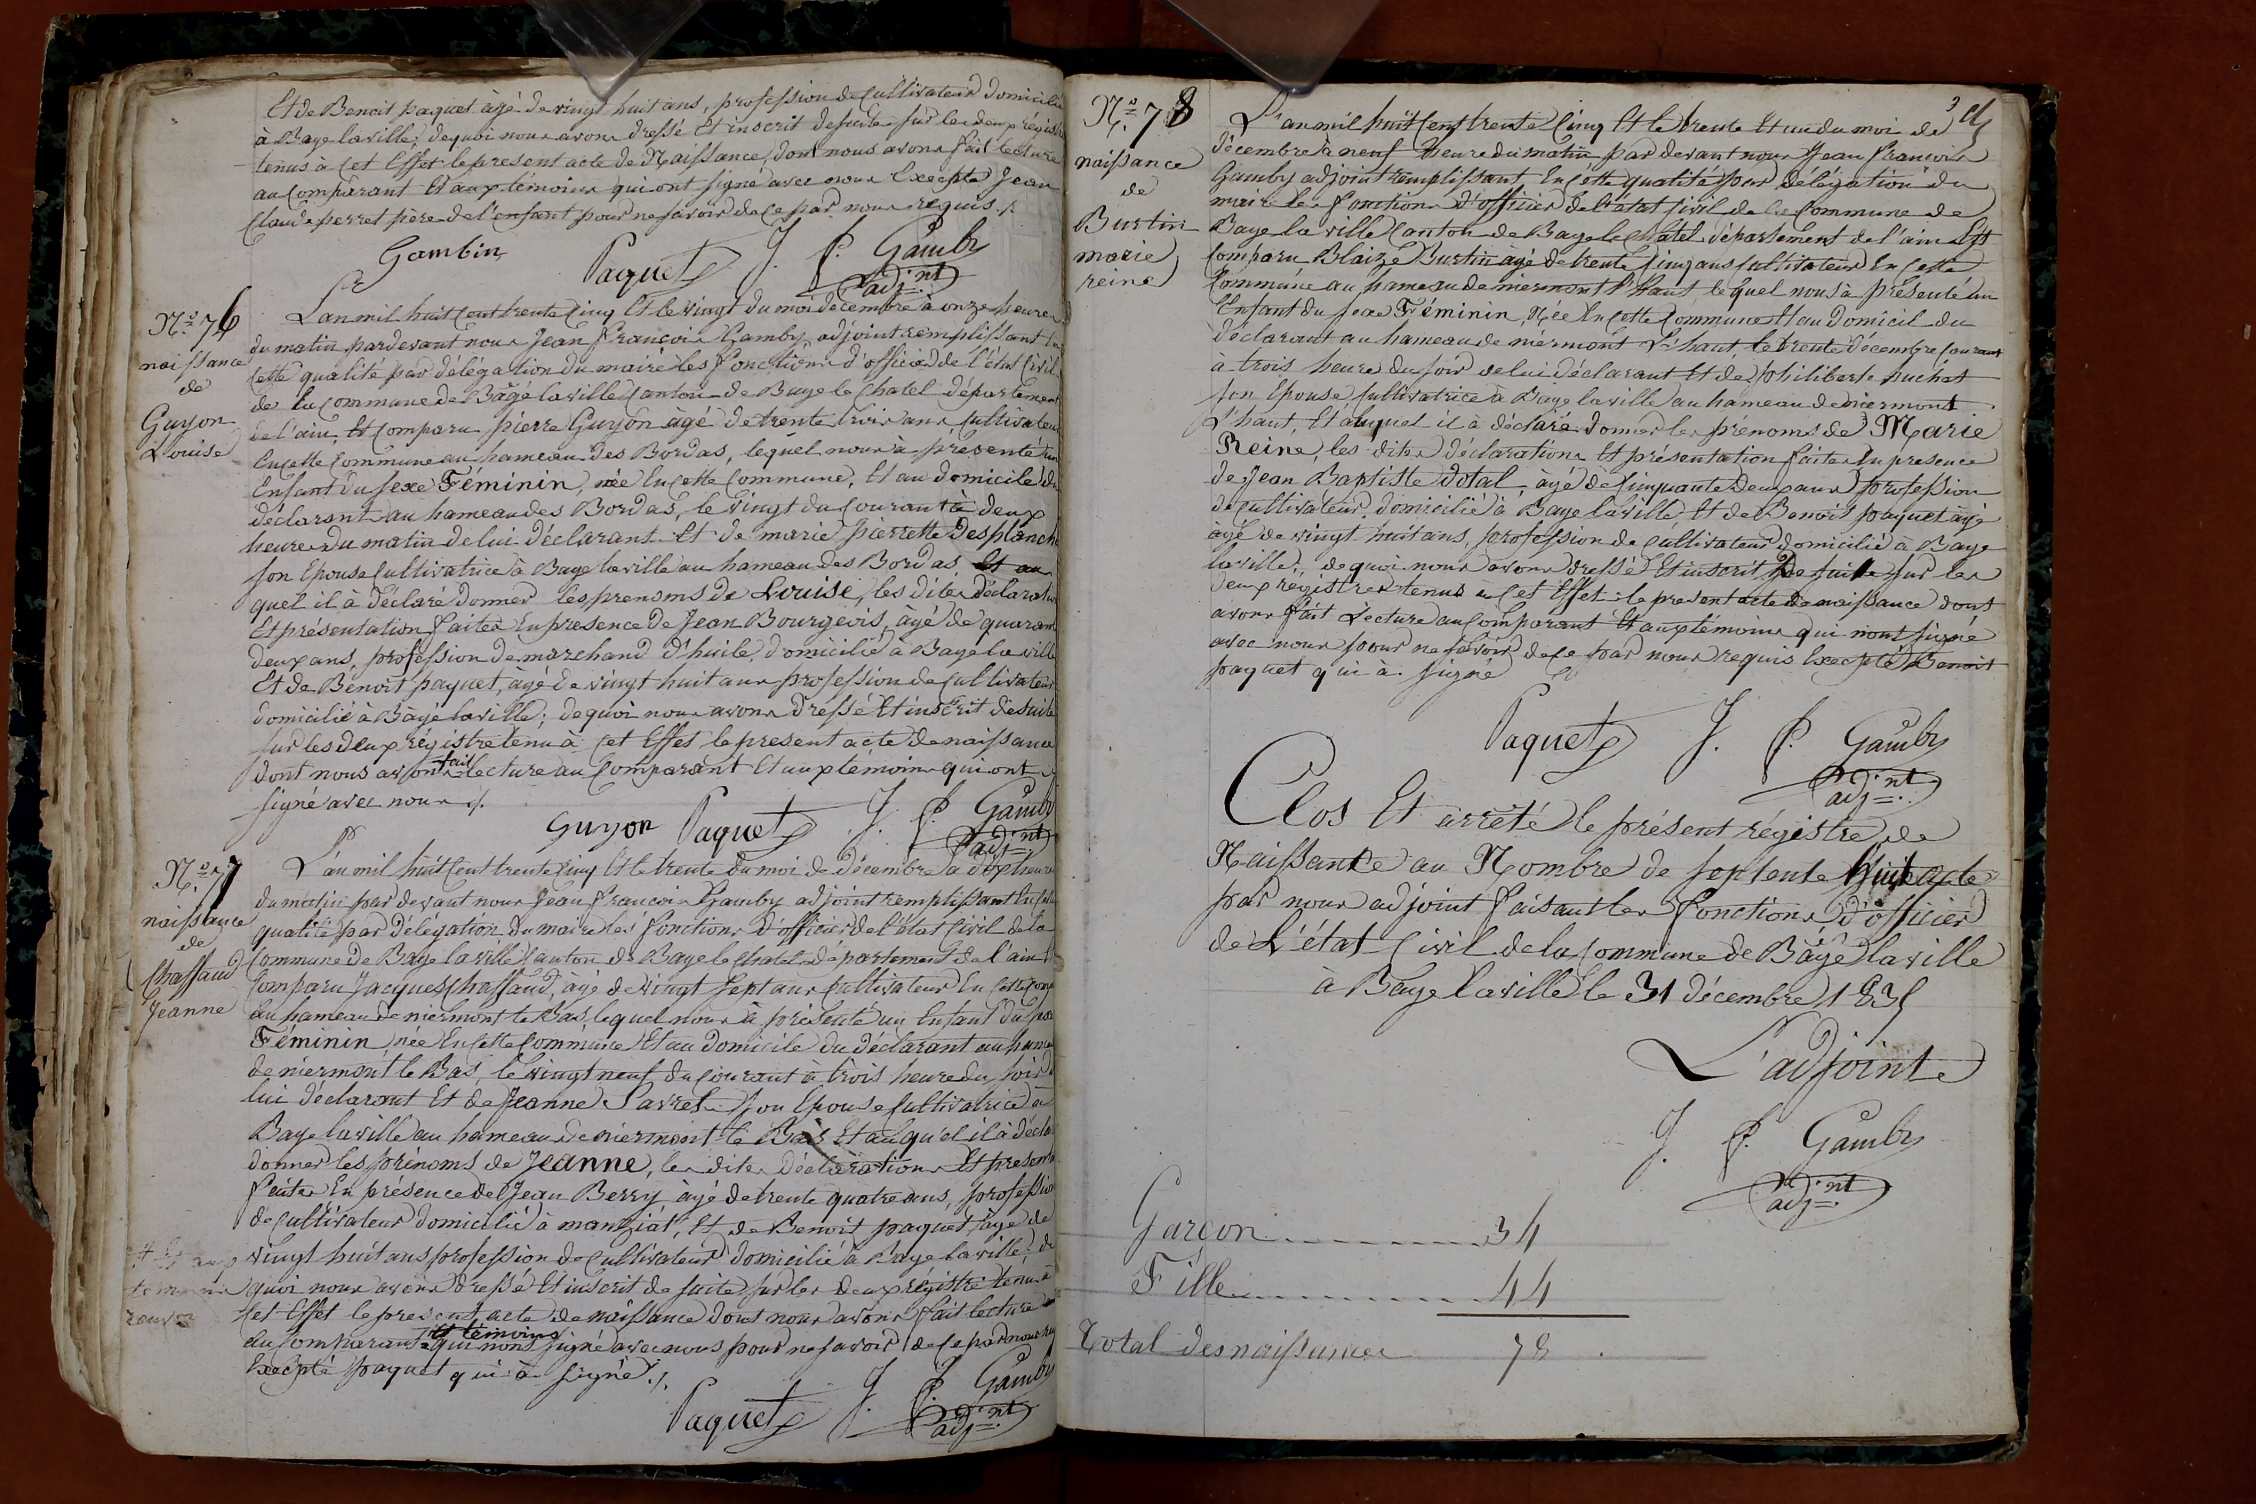 Et de Benoit paquet âgé de vingt huit ans, profession de Cultivateur domicilié
à Baye laville; de quoi nous avons dressé Et inscrit desuite sur les deux registres
tenus à Cet Effet le present acte de Naissance, dont nous avons fait lecture
au Comparant Et aux témoins qui ont signé avec nous Excepté Jean
Claude perret père de l'enfant pour ne savoir de ce par nous requis ./.
Gambin Paquet J. F. Gamby
adj.nt
N.o 76
naissance
de
Guyon
Louise
L'an mil huit Cent trente Cinq Et le vingt du moi décembre à onze heures
du matin pardevant nous Jean françois Gamby, adjoint remplissant En
Cette qualité par délégation du maire les fonctions d'officier de l'état Civil
de la Commune de Bâgé laville Canton de Baye le Chatel département
de l'ain Et Comparu pierre Guyon âgé de trente trois ans Cultivateur
En cette Commune au hameau des Bordas, lequel nous à présenté un
Enfant du sexe Féminin, née En cette Commune, Et au domicile du
déclarant au hameau des Bordas, le vingt du Courant à deux
heures du matin de lui déclarant Et de marie pierrette Desplanch
son Epouse Cultivatrice à Baye laville au hameau des Bordas Et au
quel il à déclaré donner les prenoms de Louise, les dites déclaration
Et présentation faites En presence de Jean Bourgeois, âgé de quarante
deux ans, profession de marchand d'huile, domicilié à Bagé la ville
Et de Benoit paquet, agé de vingt huit ans profession de Cultivateur
domicilié à Bâgé laville; de quoi nous avons dressé Et inscrit desuite
sur les deux régistre tenu à Cet Effet le present acte de naissance
dont nous avons fait lecture au Comparant Et aux témoins qui ont
signé avec nous ./.
Guyon Paquet J. F. Gamby
adj.nt
N.o 77
naissance
de
Chassaud
Jeanne
L'an mil huit Cent trente Cinq Et le trente du moi de décembre à dix heures
du matin par devant nous Jean françois Gamby adjoint remplissant En Cette
qualité par délégation du maire les fonctions d'officier de l'état Civil de la
Commune de Baye laville Canton de Baye le Chatel département de l'ain Et
Comparu Jacques Chassaud, âgé de vingt Sept ans Cultivateur En Cette Comm
au hameau de niermont le Bas, lequel nous à présenté un Enfant du sexe
Féminin née En Cette Commune Et au domicile du déclarant au hameau
de niermont le Bas, le vingt neuf du Courant à trois heure du soir de
lui déclarant Et de Jeanne Savret son Epouse Cultivatrice à
Baye laville au hameau de niermont le Bas Et auquel il à déclaré
donner les prénoms de Jeanne, les dites déclarations Et present
faites En présence de Jean Berry âgé de trente quatre ans, profession
de Cultivateur domicilié à manziat, Et de Benoit paquet, âgé de
vingt huit ans profession de Cultivateur domicilié à Baye laville; de
quoi nous avons dressé Et inscrit de suite sur les deux régistre tenu à
Cet Effet le present acte de naissance dont nous avons fait lecture
au Comparant et témoins qui nons signé avec nous pour ne savoir de ce par nous req
Excepté paquet qui à signé ./.
Paquet J. F. Gamby
adj.nt
N.o 78
naissance
de
Burtin
marie
reine
L'an mil huit Cent trente Cinq Et le trente Et un du moi de
décembre à neuf heure du matin par devant nous Jean francois
Gamby adjoint remplissant En Cette qualité par délégation du
maire les fonctions d'officier de l'état Civil de la Commune de
Baye la ville Canton de Baye le chatel département de l'ain Est
Comparu Blaize Burtin âgé de trente Cinq ans Cultivateur En Cette
Commune au hameau de niermont l'haut lequel nous à présenté un
Enfant du sexe Féminin, Née En Cette Commune Et au domicil du
déclarant au hameau de niermont L'haut, le trente décembre Courant
à trois heure du soir de lui déclarant Et de philiberte puchat
son Epouse Cultivatrice à Baye laville au hameau de niermont
L'haut, Et auquel il à déclaré donner les prenoms de Marie
Reine, les dites déclarations Et présentation faites En presence
de Jean Baptiste dotal, âgé de Cinquante deux ans profession
de Cultivateur domicilié à Baye laville Et de Benoit paquet âgé
âgé de vingt huit ans, profession de Cultivateur domicilié à Baye
laville; de quoi nous avons dressé Et inscrit De suite sur les
deux régistres tenus à Cet Effet le present acte de naissance dont
avons fait Lecture au Comparant Et aux témoins qui nont signé
avec nous pour ne savoir de ce par nous requis Excepté Benoit
paquet qui à signé
Paquet J. F. Gamby
adj.nt
Clos Et arreté le présent régistre de
Naissance au Nombre de septente huit acte
par nous adjoint faisant les fonctions d'officier
de L'état Civil de la Commune de Bâgé laville
à Baye laville le 31 décembre 1835
L'adjoint
J. F. Gamby
adj.nt
Garçon 34
Fille 44
Total des naissances 78